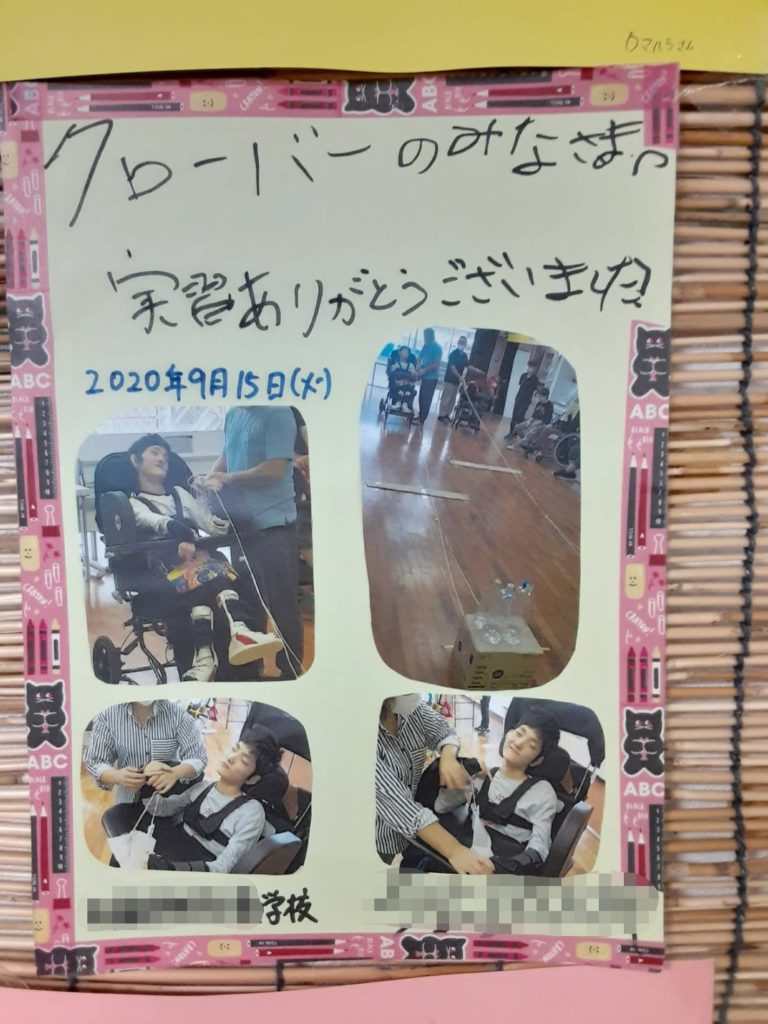 ウマハラさん
クローバーのみなさまへ
実習ありがとうございました!
2020年9月15日(火)
学校
ABC
ABC
ABC
ABC
ABC